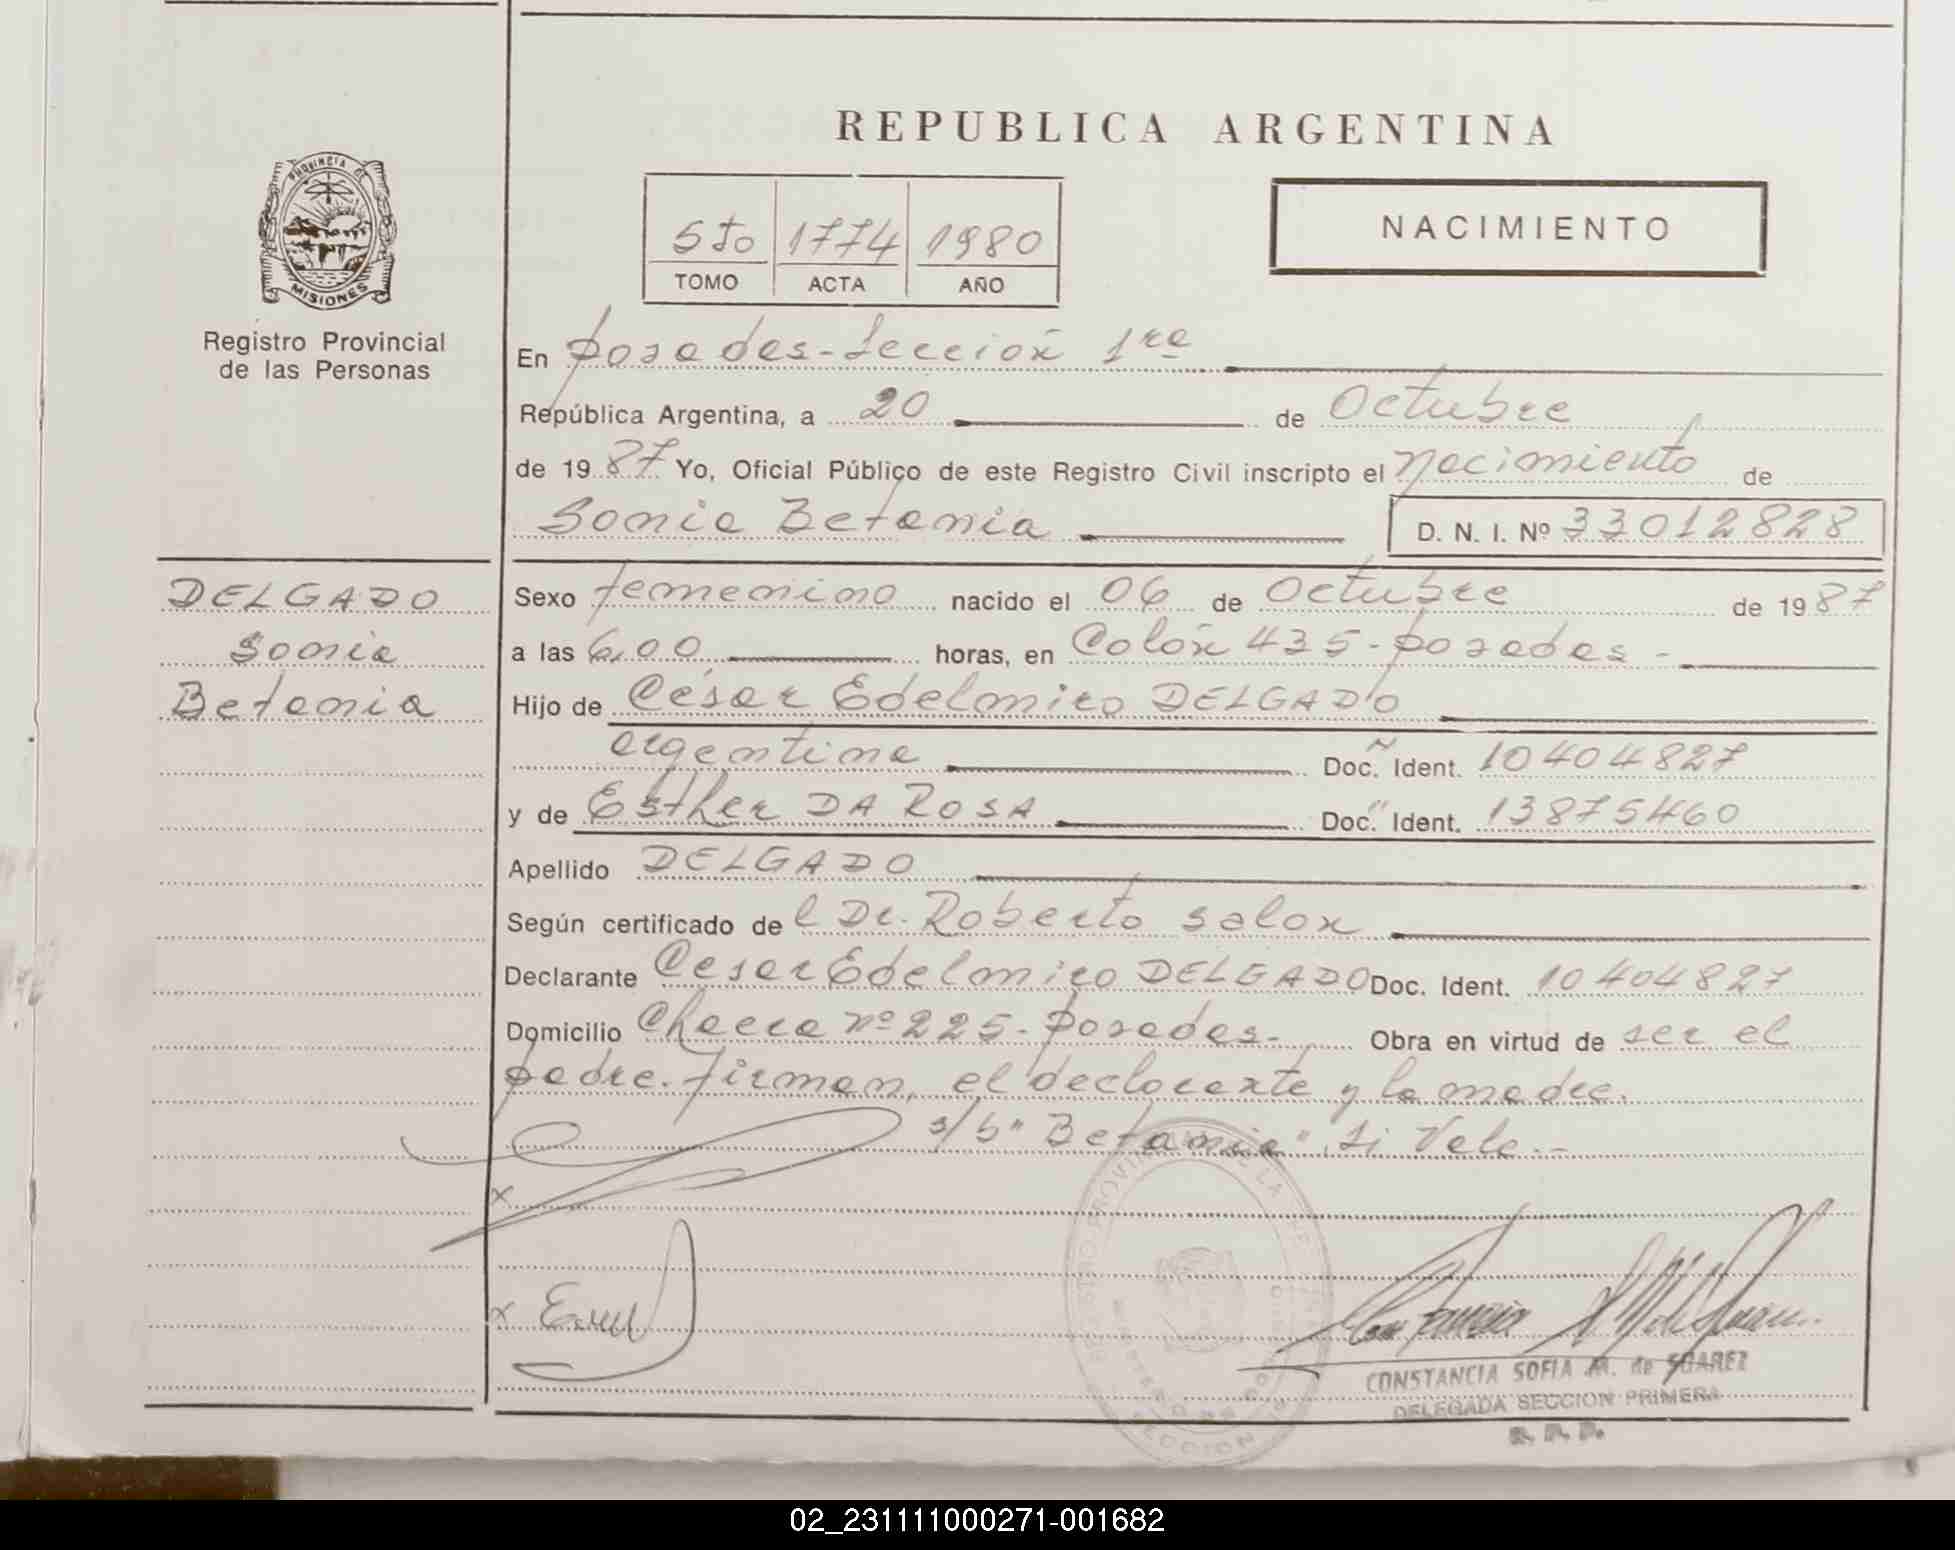 REPUBLICA ARGENTINA
PROVINCIA DE
MISIONES
Registro Provincial
de las Personas
5to 1774 1980
TOMO ACTA AÑO
NACIMIENTO
En posadas-Sección 1ra
República Argentina, a 20 de Octubre
de 1987 Yo, Oficial Público de este Registro Civil inscripto el nacimiento de
Sonia Betania D. N. I. Nº 33012828
DELGADO
Sonia
Betania
Sexo femenino nacido el 06 de Octubre de 1987
a las 6,00 horas, en Colón 435-posadas-
Hijo de César Edelmiro DELGADO
argentina Doc. Ident. 10404827
y de Esther DA ROSA Doc. Ident. 13875460
Apellido DELGADO
Según certificado de l Dr. Roberto Salox
Declarante Cesar Edelmiro DELGADO Doc. Ident. 10404827
Domicilio Chacra nº 225-posadas- Obra en virtud de ser el
padre. Firman, el declarante y la madre.
s/b "Betania". Si Vale.-
x
x
CONSTANCIA SOFIA M. de SUAREZ
DELEGADA SECCION PRIMERA
R. P. P.
02_231111000271-001682